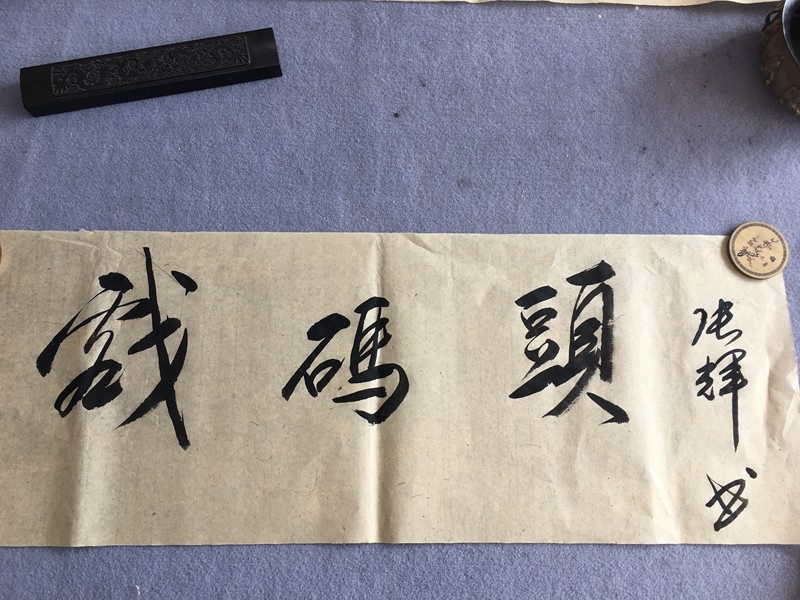 戲碼頭
张輝书